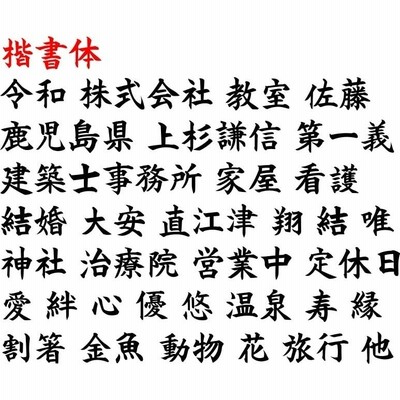 楷書体
令和 株式会社 教室 佐藤
鹿児島県 上杉謙信 第一義
建築士事務所 家屋 看護
結婚 大安 直江津 翔 結 唯
神社 治療院 営業中 定休日
愛 絆 心 優 悠 温泉 寿 縁
割箸 金魚 動物 花 旅行 他